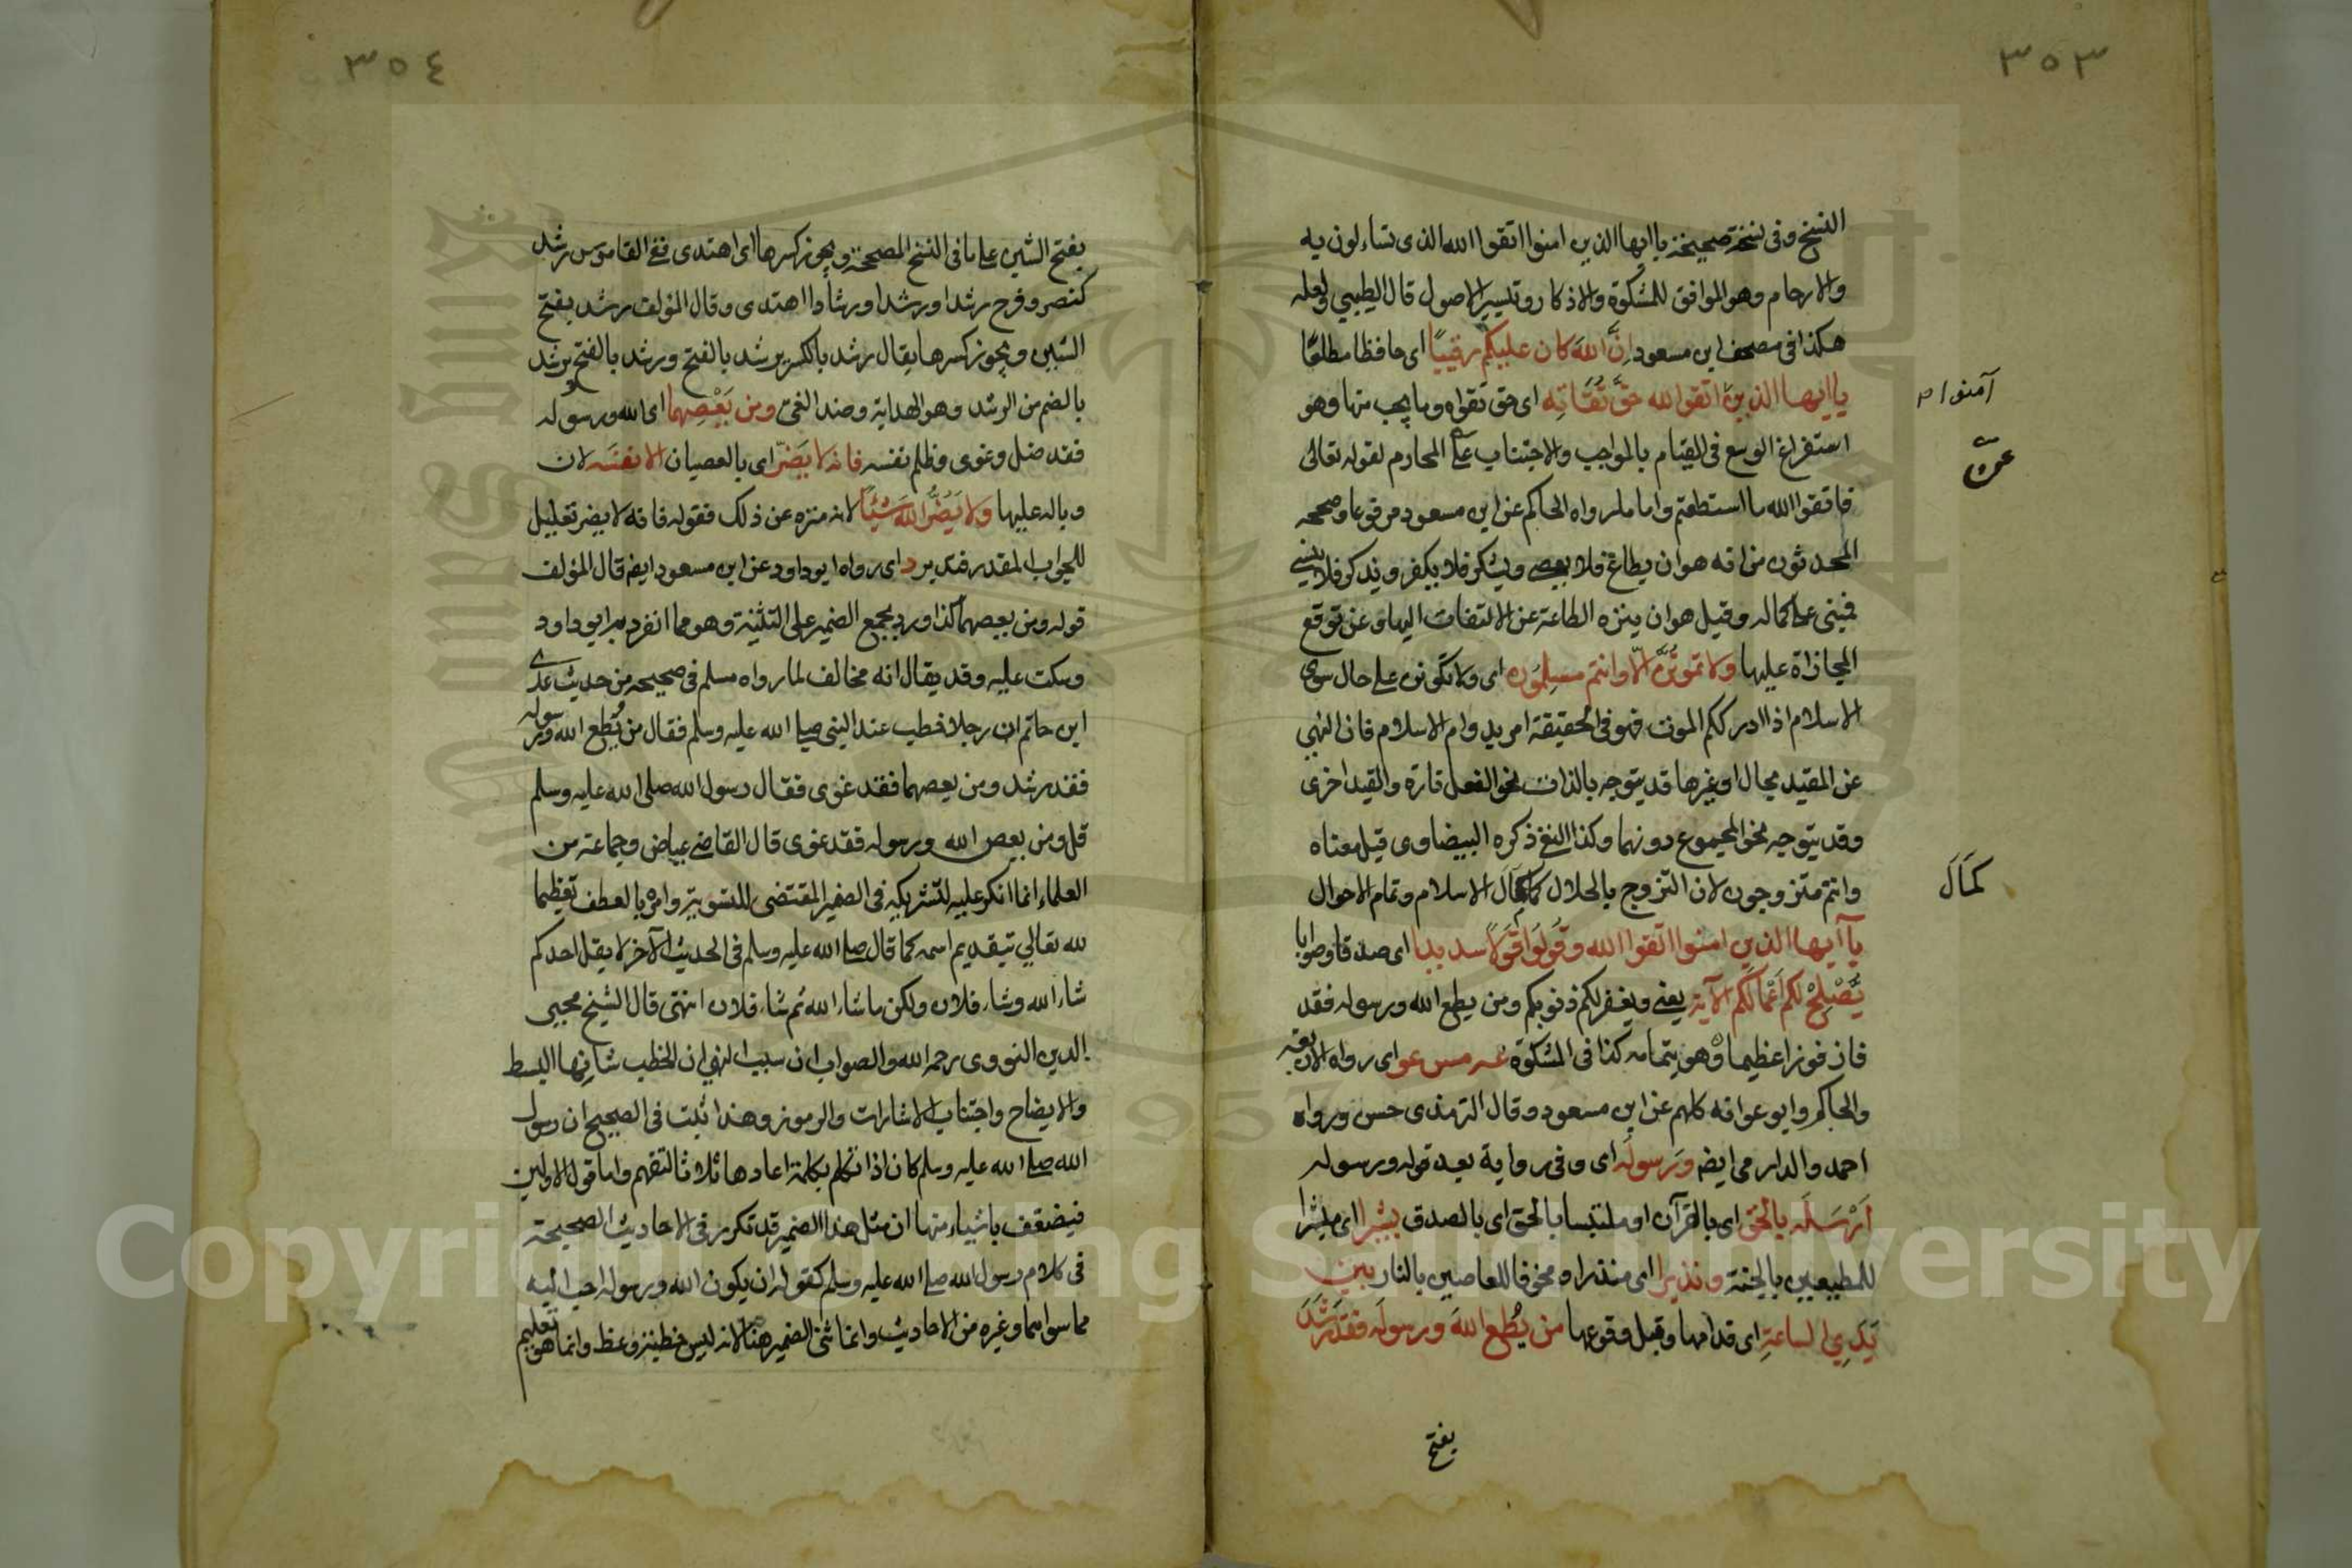 ٣٥٣
النسخ وفى نسخة صحيحة يا ايها الذين امنوا اتقوا الله الذى تساءلون به
والارحام وهو الموافق للمشكوة والاذكار وتيسير الاصول قال الطيبي ولعله
هكذا فى مصحف ابن مسعود اِنَّ اللهَ كان عليكم رقيبًا اى حافظا مطلعًا
يا ايها الذينَ اتقوا الله حَقَّ تُقَاتِه اى حق تقواه وما يجب منها وهو
آمنوا صح
استفراغ الوسع فى القيام بالمواجب والاجتناب على المحارم لقوله تعالى
عن
فاتقوا الله ما استطعتم واما ما رواه الحاكم عن ابن مسعود مرفوعا وصححه
المحدثون من انه هو ان يطاع فلا يعصى ويشكر فلا يكفر ويذكر فلا ينسى
فمبنى على كماله وقيل هو ان ينزه الطاعة عن الالتفات اليها وعن توقع
المجازاة عليها ولا تموتُنَّ الّا وانتم مسلِمُون اى ولا تكونون على حال سوى
الاسلام اذا ادرككم الموت فهو فى الحقيقة امر بدوام الاسلام فان النهى
عن المقيد بحال او غيرها قد يتوجه بالذات نحو الفعل تارة والقيد اخرى
وقد يتوجه نحو المجموع دونهما وكذا النفى ذكره البيضاوى قيل معناه
وانتم متزوجون لان التزوج بالحلال كمال الاسلام وتمام الاحوال
كمَال
يآ ايها الذين امنوا اتقوا الله وقُولُوا قَولًا سديدا اى صدقا وصوابا
يُّصْلِحْ لكم اَعْمَالَكُم الآية يعنى ويغفر لكم ذنوبكم ومن يطع الله ورسوله فقد
فاز فوزا عظيما وهو بتمامه كذا فى المشكوة عه مس عو اى رواه الاربعة
والحاكم وابو عوانه كلهم عن ابن مسعود وقال الترمذى حسن ورواه
احمد والدارمى ايضا وَرسولُه اى وفى رواية بعد قوله ورسوله
اَرْسَلَه بالحَق اى بالقرآن او ملتبسا بالحق اى بالصدق بشيرا اى مبشرا
للمطيعين بالجنة ونذيرا اى منذرا ومخوفا للعاصين بالنار بين
يَدَيِ الساعةِ اى قدامها وقبل وقوعها من يُطع اللهَ ورسولَه فقدرَشَدَ
بفتح
٣٥٤
بفتح الشين على ما فى النسخ المصححة ويجوز كسرها اى اهتدى ففى القاموس رشد
كنصر وفرح رشدا ورشدا ورشادا اهتدى وقال المؤلف رشد بفتح
الشين ويجوز كسرها يقال رشد بالكسر يرشد بالفتح ورشد بالفتح يرشد
بالضم من الرشد وهو الهداية وضد الغى ومن يَعْصِهما اى الله ورسوله
فقد ضل وغوى وظلم نفسه فانه لا يَضرّ اى بالعصيان الا نفسَه لان
وباله عليها ولا يَضُرُّ اللهَ شيْئًا لانه منزه عن ذلك فقوله فانه لا يضر تعليل
للجواب المقدر فتدبر د اى رواه ابو داود عن ابن مسعود ايضا قال المؤلف
قوله ومن يعصهما كذا ورد بجمع الضمير على التثنية وهو مما انفرد به ابو داود
وسكت عليه وقد يقال انه مخالف لما رواه مسلم فى صحيحه من حديث عدى
ابن حاتم ان رجلا خطب عند النبى صلى الله عليه وسلم فقال من يُطع الله ورسوله
فقد رشد ومن يعصهما فقد غوى فقال رسول الله صلى الله عليه وسلم
قل ومن يعص الله ورسوله فقد غوى قال القاضى عياض وجماعة من
العلماء انما انكر عليه لتشريكه فى الضمير المقتضى للتسوية وامره بالعطف تعظيما
لله تعالي بتقديم اسمه كما قال صلى الله عليه وسلم فى الحديث الآخر لا يقل احدكم
شاء الله وشاء فلان ولكن ما شاء الله ثم شاء فلان انتهى قال الشيخ محيى
الدين النووى رحمه الله والصواب ان سبب النهى ان الخطب شانها البسط
والايضاح واجتناب الاشارات والرموز وهذا ثبت فى الصحيح ان رسول
الله صلى الله عليه وسلم كان اذا تكلم بكلمة اعادها ثلاثا لتفهم واما قول الاولين
فيضعف باشياء منها ان مثل هذا الضمير قد تكرر فى الاحاديث الصحيحة
فى كلام رسول الله صلى الله عليه وسلم كقوله ان يكون الله ورسوله احب اليه
مما سواهما وغيره من الاحاديث وانما ثنى الضمير هنا لانه ليس خطبة وعظ وانما هو تعليم
Copyright © King Saud University